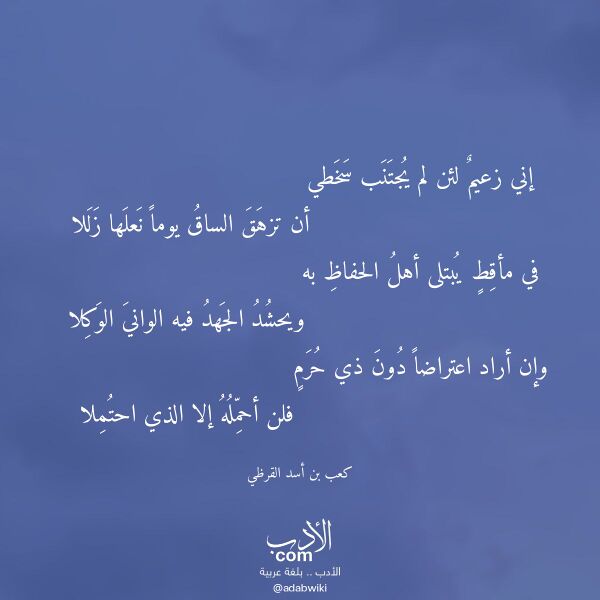 إني زعيمٌ لئن لم يُجتَنَب سَخَطي
أن تزهَقَ الساقُ يوماً نَعلَها زَلَلا
في مأقِطٍ يُبتلى أهلُ الحفاظِ به
ويحشُدُ الجَهدُ فيه الوانيَ الوَكِلا
وإن أراد اعتراضاً دُونَ ذي حُرَمٍ
فلن أحمِّلُهُ إلا الذي احتُمِلا
كعب بن أسد القرظي
الأدب
com
الأدب .. بلغة عربية
@adabwiki